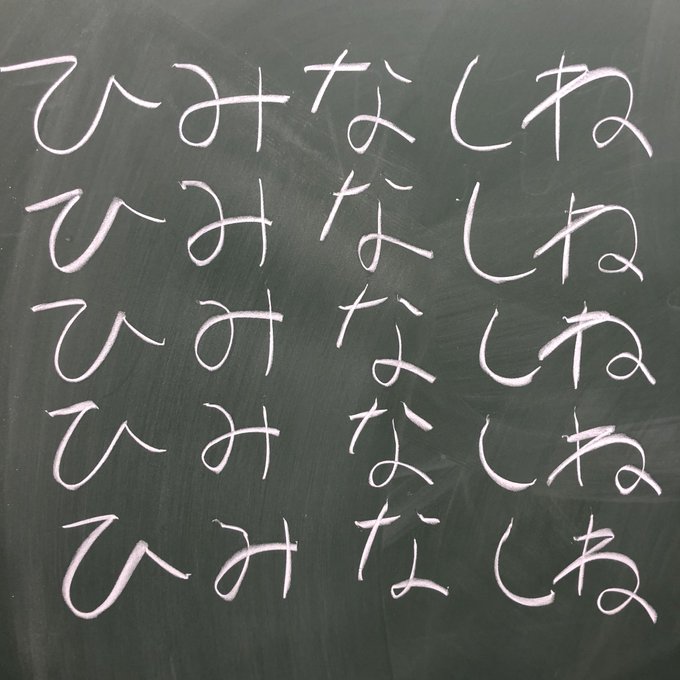 ひみなしね
ひみなしね
ひみなしね
ひみなしね
ひみなしね